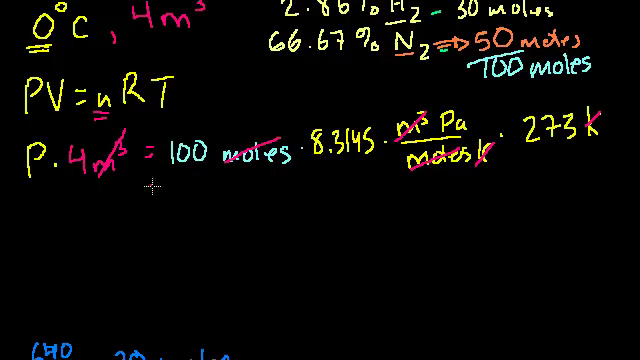 2.86% H₂ - 30 moles
0°C, 4m³
66.67% N₂ ⇒ 50 moles
100 moles
PV = nRT
P · 4m³ = 100 moles · 8.3145 · m³ Pa / moles k · 273 k